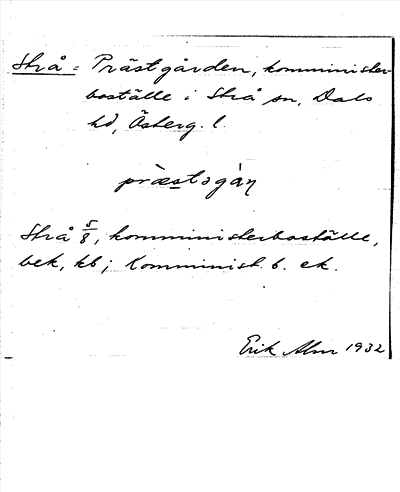 Strå = Prästgården, komminister-
boställe i Strå sn, Dals
hd, Österg. l.
præstəgạ́ṇ
Strå 5/8, komministerboställe,
bek, kb; Komminist. b. ek.
Erik Alm 1932